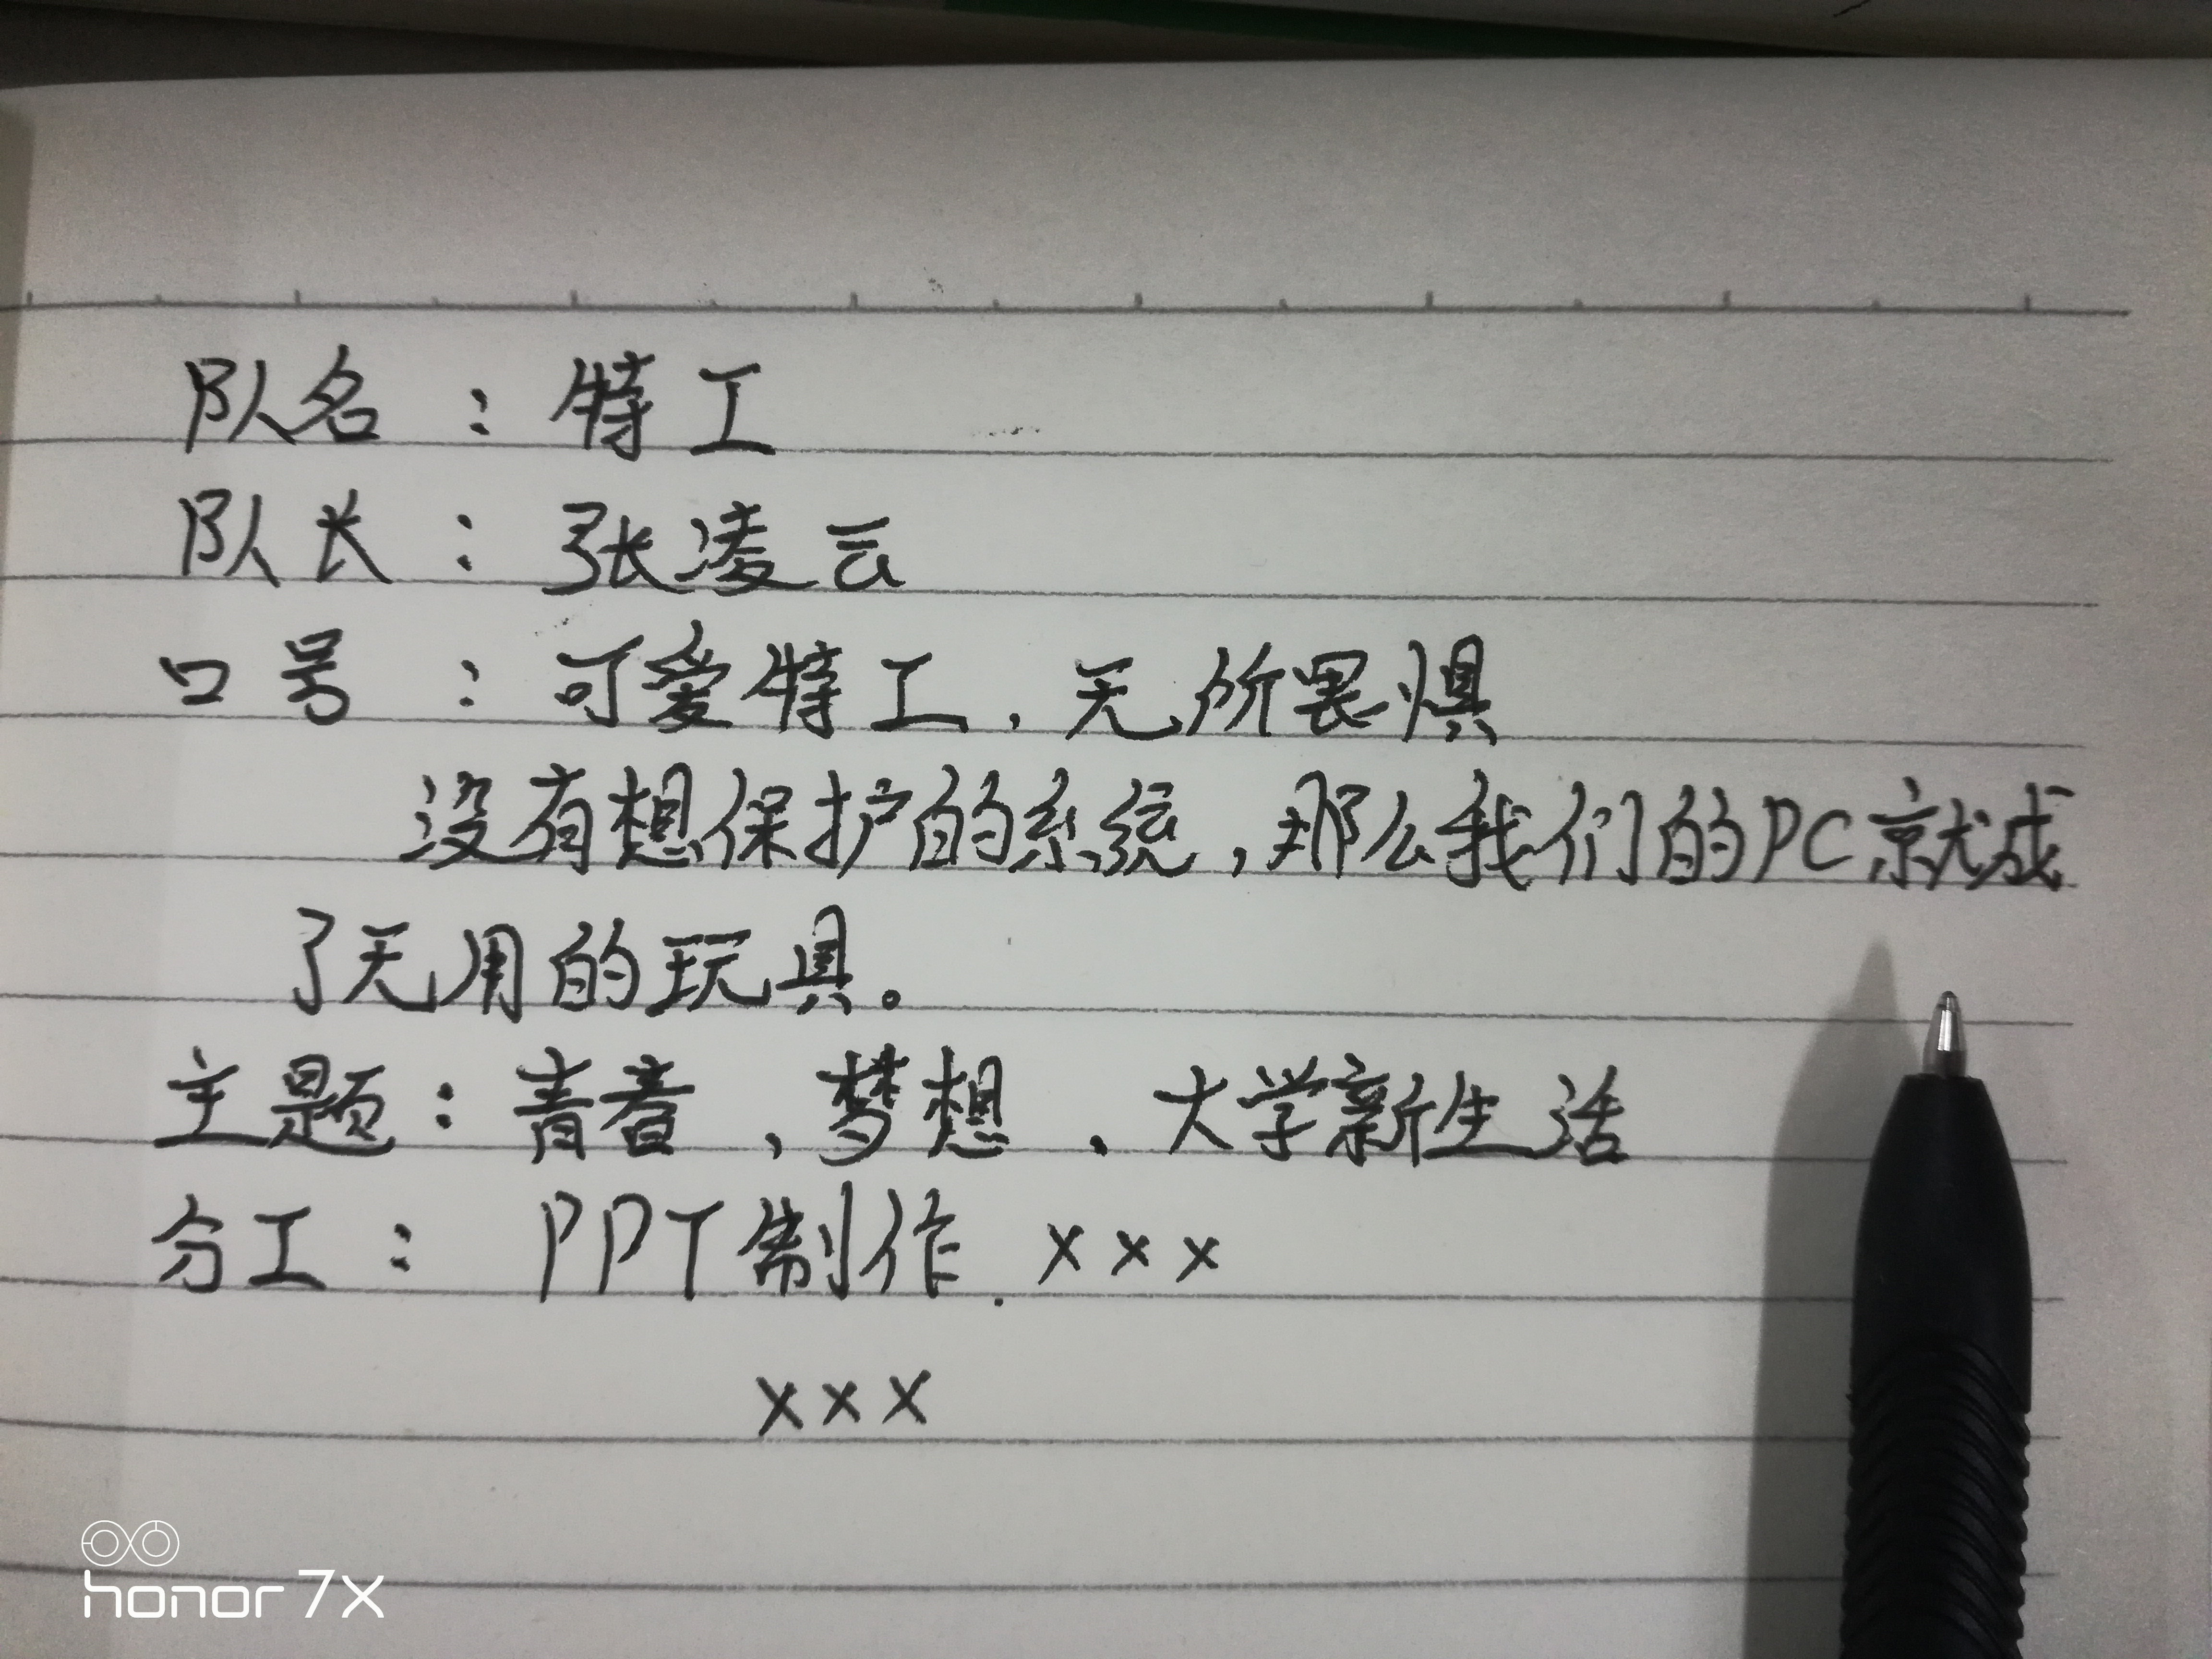 队名：特工
队长：张凌云
口号：可爱特工，无所畏惧
没有想保护的系统，那么我们的PC就成
了无用的玩具。
主题：青春，梦想，大学新生活
分工：PPT制作．xxx
xxx
honor 7X